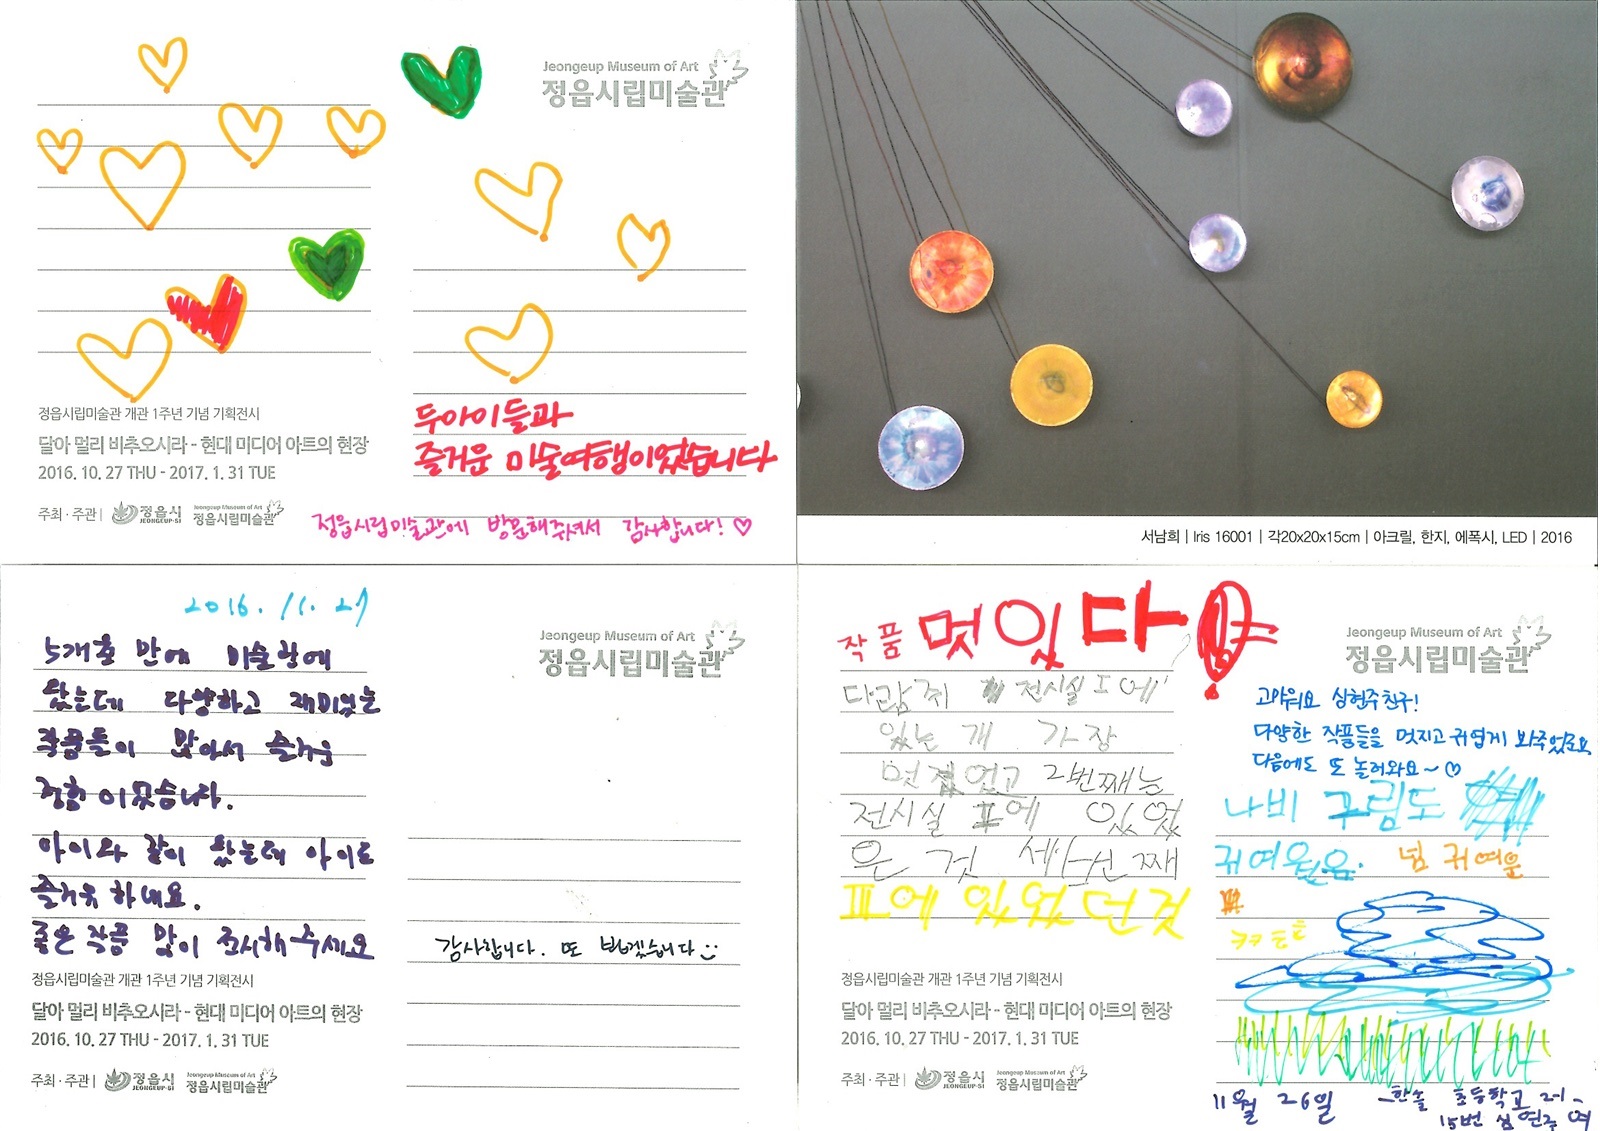 Jeongeup Museum of Art
정읍시립미술관
두아이들과
즐거운 미술여행이었습니다
정읍시립미술관 개관 1주년 기념 기획전시
달아 멀리 비추오시라 - 현대 미디어 아트의 현장
2016. 10. 27 THU - 2017. 1. 31 TUE
주최 · 주관 | 정읍시 JEONGEUP-SI Jeongeup Museum of Art 정읍시립미술관
정읍시립미술관에 방문해주셔서 감사합니다! ♡
서남희 | Iris 16001 | 각20x20x15cm | 아크릴, 한지, 에폭시, LED | 2016
2016. 11. 27
Jeongeup Museum of Art
정읍시립미술관
5개월 만에 미술관에
왔는데 다양하고 재미있는
작품들이 많아서 즐거운
경험이었습니다.
아이와 같이 왔는데 아이도
즐거워 하네요.
좋은 작품 많이 전시해주세요
감사합니다. 또 뵙겠습니다
정읍시립미술관 개관 1주년 기념 기획전시
달아 멀리 비추오시라 - 현대 미디어 아트의 현장
2016. 10. 27 THU - 2017. 1. 31 TUE
주최 · 주관 | 정읍시 JEONGEUP-SI Jeongeup Museum of Art 정읍시립미술관
작품 멋있다
Jeongeup Museum of Art
정읍시립미술관
다람쥐 전시실 I에
있는 게 가장
멋졌었고 2번째는
전시실 II에 있었
은 것 세번째
III에 있었던것
고마워요 심현주친구!
다양한 작품들을 멋지고 귀엽게 봐주었군요
다음에도 또 놀러와요~♡
나비 그림도
귀여웠음. 넘 귀여운
ㅋㅋ ㅌㅌ
정읍시립미술관 개관 1주년 기념 기획전시
달아 멀리 비추오시라 - 현대 미디어 아트의 현장
2016. 10. 27 THU - 2017. 1. 31 TUE
주최 · 주관 | 정읍시 JEONGEUP-SI Jeongeup Museum of Art 정읍시립미술관
11월 26일 한솔 초등학교 2-1
15번 심현주 여